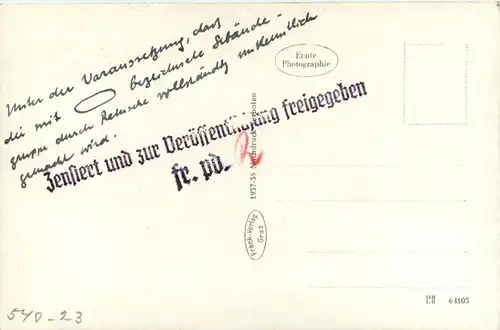 Unter der Voraussetzung, dass
die mit bezeichnete Gebäude-
gruppe durch Retusche vollständig unkenntlich
gemacht wird.
Zensiert und zur Veröffentlichung freigegeben
fr. pd.
Echte
Photographie
1937-38 Nachdruck verboten
Frank-Verlag
Graz
64105
540-23